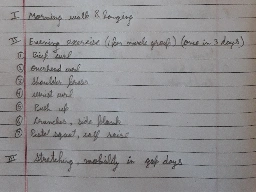 I Morning walk & hanging
II Evening exercise (1 for muscle group) (once in 3 days)
① Bicep curl
② overhead
③ Shoulder press
④ wrist curl
⑤ Push up
⑥ crunches, side plank
⑦ squat, calf raise
III Stretching, mobility in gap days